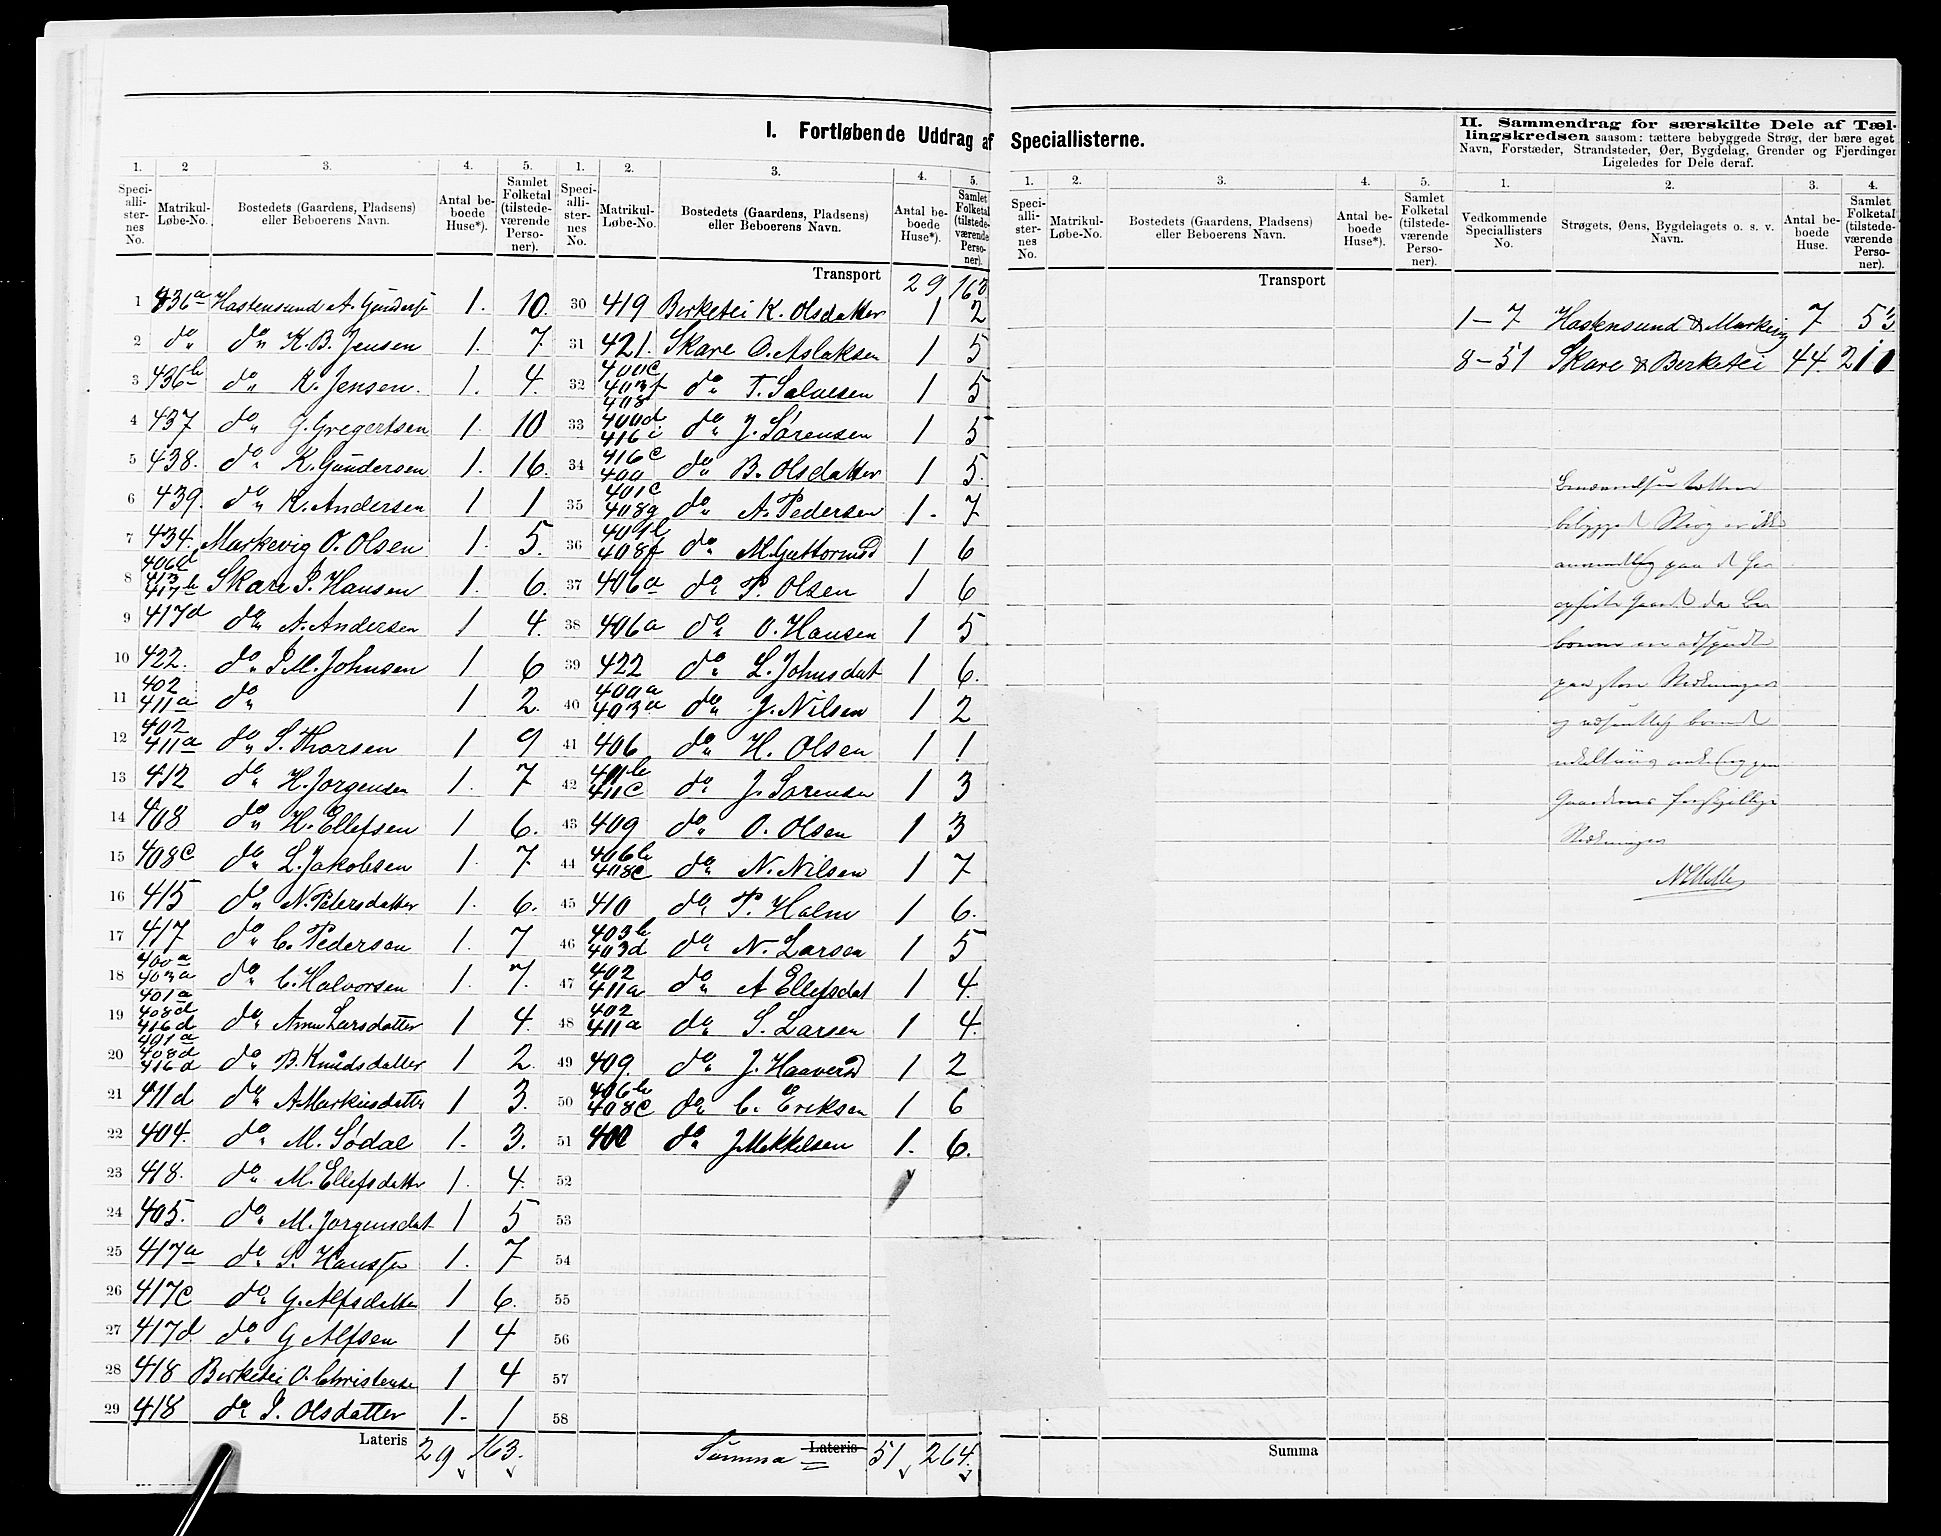 I. Fortløbende Uddrag af Speciallisterne.
II. Sammendrag for særskilte Dele af Tællingskredsen saasom: tættere bebyggede Strøg, der bære eget
Navn, Forstæder, Strandsteder, Øer, Bygdelag, Grender og Fjerdinger
Ligeledes for Dele deraf.
1. 2 3. 4. 5.
Speciallisternes No. Matrikul-Løbe-No. Bostedets (Gaardens, Pladsens) eller Beboerens Navn. Antal beboede Huse*). Samlet Folketal (tilstedeværende Personer).
1 436a Hastensund A. Gunders 1. 10.
2 do do K. B. Jensen 1. 7
3 436b do K. Jensen. 1. 4.
4 437 do G. Gregertsen 1. 10
5 438. do K. Gundersen 1. 16.
6 439. do K. Andersen 1 1
7 434. Markevig O. Olsen 1. 5.
8 413 417b Skare P. Hansen 1. 6.
9 417d do A. Andersen 1 4.
10 422. do P. M. Johnsen 1 6
11 402 411a do 1 2.
12 402 411a do S. Thorsen 1 9
13 412 do H. Jorgensen 1. 7
14 408 do H. Ellefsen 1 6.
15 408c do L. Jakobsen 1. 7
16 415 do N. Petersdatter 1. 6.
17 417 do C. Pedersen 1. 7
18 400a 403a do C. Halvorsen 1. 7.
19 401a 408d 416d do Anne Larsdatter 1 4.
20 401a 408d 416d do B. Knudsdatter 1 2.
21 411d do A Markusdatter 1 3.
22 404. do M. Sødal 1. 3.
23 418. do M. Ellefsdatter 1. 4.
24 405. do M. Jorgensdat 1 5
25 417a do S. Hansen 1. 7
26 417c do G. Alfsdatter 1 6.
27 417d do G Alfsen 1 4
28 418 Berketei O. Christense 1 4
29 418 do P. Olsdatter 1. 1
Lateris 29 163.
1. 2. 3. 4. 5.
Speciallisternes No. Matrikul-Løbe-No. Bostedets (Gaardens, Pladsens) eller Beboerens Navn. Antal beboede Huse*). Samlet Folketal (tilstedeværende Personer).
Transport 29 163.
30 419 Berketei K. Olsdatter 1 2
31 421. Skare O. Aslaksen 1 5
32 400c 403f 408 do T. Salvesen 1 5
33 400d. 416i do J. Sørensen 1 5
34 416c 400 do B. Olsdatter 1 5.
35 401c 408g do A. Pedersen 1. 7
36 401b 408f do M. Guttormsd 1 6
37 406a do P. Olsen 1 6
38 406a do O. Hansen 1 5
39 422 do L. Johnsdat 1 6.
40 400a 403a do J. Nilsen 1 2
41 406 do H. Olsen 1 1
42 401b 411c do J. Sorensen 1 3
43 409 do O. Olsen 1 3
44 406b 408c do N. Nilsen 1 7
45 410 do P. Holm 1 6.
46 403b 403d do N. Larsen 1 5
47 402 411a do A Ellefsdat 1 4.
48 402 411a do S. Larsen 1 4.
49 409. do J. Haaversd 1 2
50 406b 408c do C. Eriksen 1 6
51 do J Mekkelsen 1. 6.
52
53
54
55
56
57
58
Summa Lateris 51 264.
1. 2. 3. 4. 5.
Speciallisternes No. Matrikul-Løbe-No. Bostedets (Gaardens, Pladsens) eller Beboerens Navn. Antal beboede Huse*). Samlet Folketal (tilstedeværende Personer).
Transport
Summa
1. 2. 3. 4.
Vedkommende Speciallisters No. Strøgets, Øens, Bygdelagets o. s. v. Navn. Antal beboede Huse. Samlet Folketal (tilstedeværende Personer).
1-7 Hastensund & Markevig 7 53
8-51 Skare & Berketei 44 211
bebygget Strøg er ikke
anvendelig paa
Gaard da
paa store Strækninger
Gaardens forskjellige
Strækninger